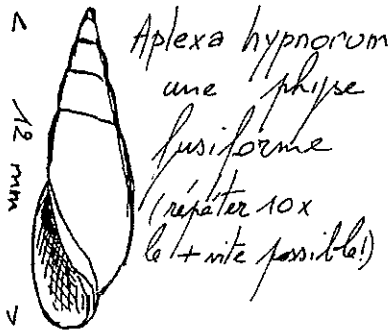 Aplexa hypnorum
une physe
fusiforme
(répéter 10x
le + vite possible!)
12 mm